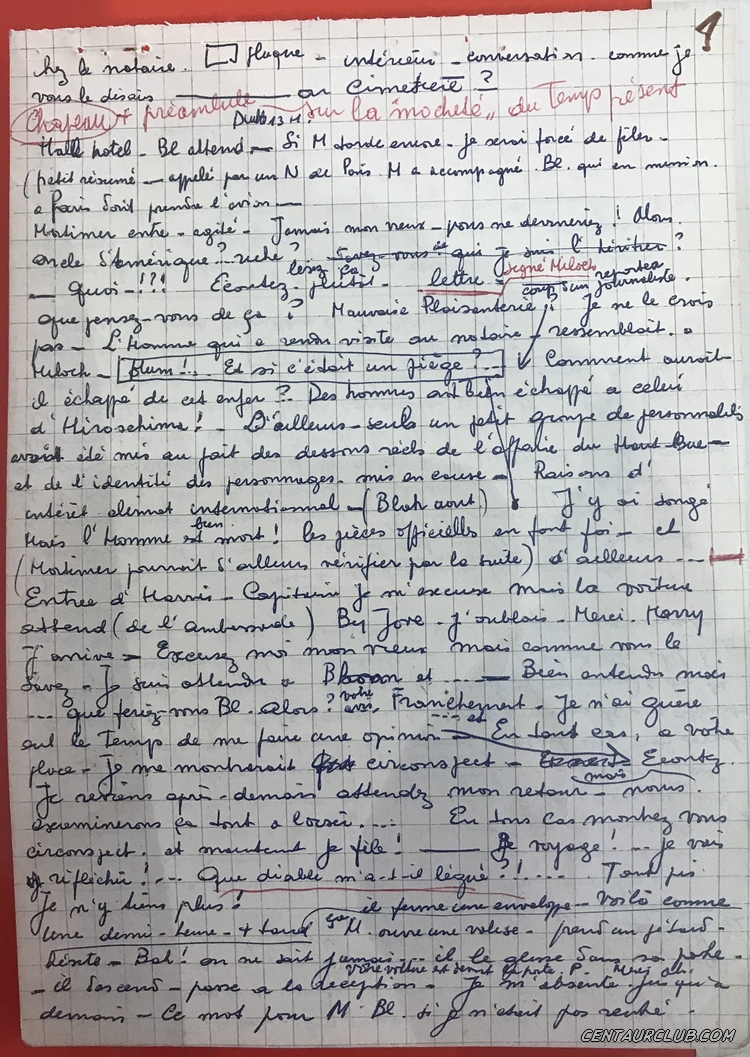 1
chez le notaire. plaque - intérieur - conversation. comme je
vous le disais ou Cimetière ?
Chapeau + préambule sur la "mocheté" du Temps présent
Dans 13 H.
Hall hotel - Bl attend - Si M tarde encore - je serai forcé de filer -
(petit résumé - appelé par un N de Paris. M a accompagné Bl. qui en mission
a Paris doit prendre l'avion -
Mortimer entre - agité - Jamais mon vieux - vous ne devineriez ! Alors.
oncle d'Amérique ? riche ? Savez-vous de qui je suis l'héritier ?
- Quoi - !?! Ecoutez plutôt - lisez ça lettre - signé Miloch
coup d'un reporter journaliste.
que pensez-vous de ça ? Mauvaise Plaisanterie ! Je ne le crois
pas - L'Homme qui a rendu visite au notaire - ressemblait. a
Miloch - hum !.. Et si c'était un piège ?.. Comment aurait-
il échappé de cet enfer ? Des hommes ont bien échappé a celui
d'Hiroschima ! - D'ailleurs - seuls un petit groupe de personnalités
avait été mis au fait des dessous réels de l'affaire du Haut Bue -
et de l'identité des personnages - mis en cause - Raisons d'
intérêt climat international - (Blah aout) J'y ai songé
Mais l'Homme est bien mort ! les pièces officielles en font foi - et
(Mortimer pourrait d'ailleurs vérifier par la suite) d'ailleurs ...
Entrée d'Harris - Capitaine je m'excuse mais la voiture
attend (de l'ambassade) By Jove - j'oublais - Merci. Harry
J'arrive - Excusez moi mon vieux mais comme vous le
savez - Je suis attendu a et .... - Bien entendu mais
... que feriez-vous Bl. alors ? votre avis, Franchement - Je n'ai guère
eut le temps de me faire une opinion ... et - En tout cas, a votre
place - Je me montrerait circonspect - mais Ecoutez.
Je reviens après-demain attendez mon retour - nous
examinerons ça tout a loisir .... En tous cas montrez vous
circonspect. et maintenant je file ! - Bon voyage ! ... je vais
réfléchir ! ... Que diable m'a-t-il légué ? ! .... Tant pis
Je n'y tiens plus ! il ferme une enveloppe - Voilà comme ça
Une demi-heure - + tard M. ouvre une valise - prend un pétard -
hésite - Bah ! on ne sait jamais ... il le glisse dans sa poche -
votre voiture est devant la porte. P. - Merci
- il descend - passe a la réception - Je m'absente jusqu'a
demain - Ce mot pour M. Bl. si je n'était pas rentré -
CENTAURCLUB.COM